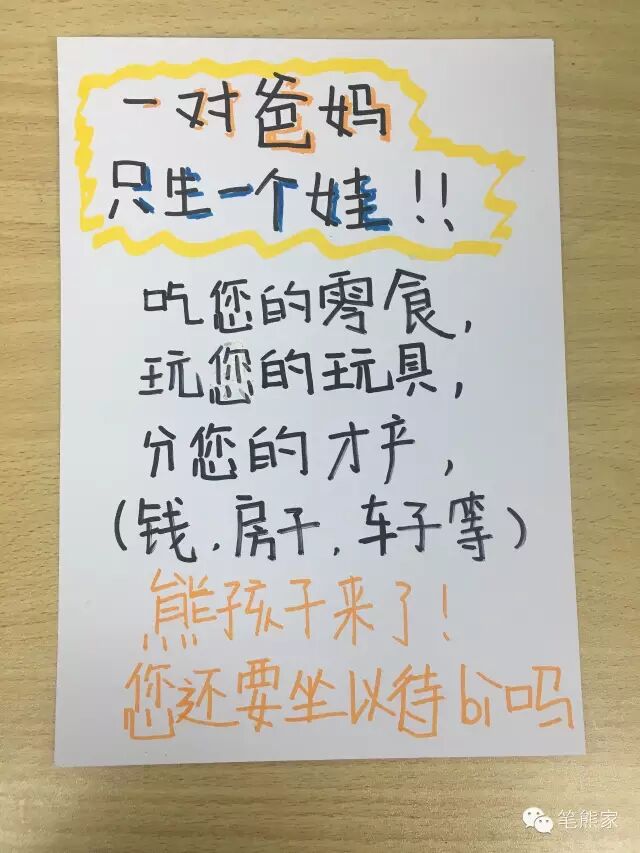 一对爸妈
只生一个娃!!
吃您的零食，
玩您的玩具，
分您的才产，
(钱，房子，车子等)
熊孩子来了！
您还要坐以待bì吗
笔熊家